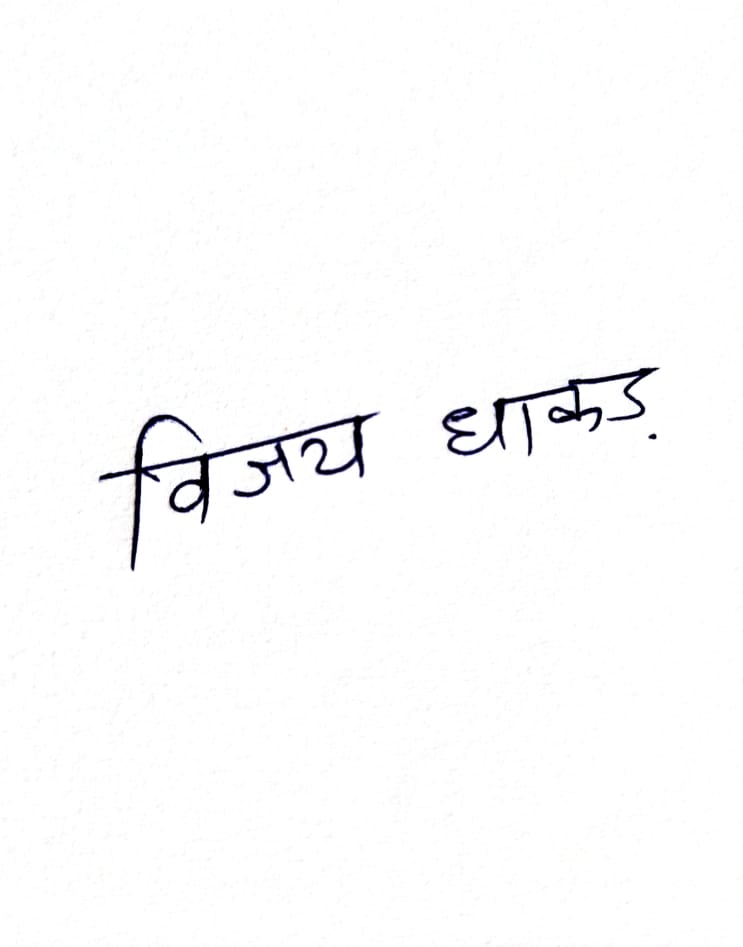 विजय धाकड़